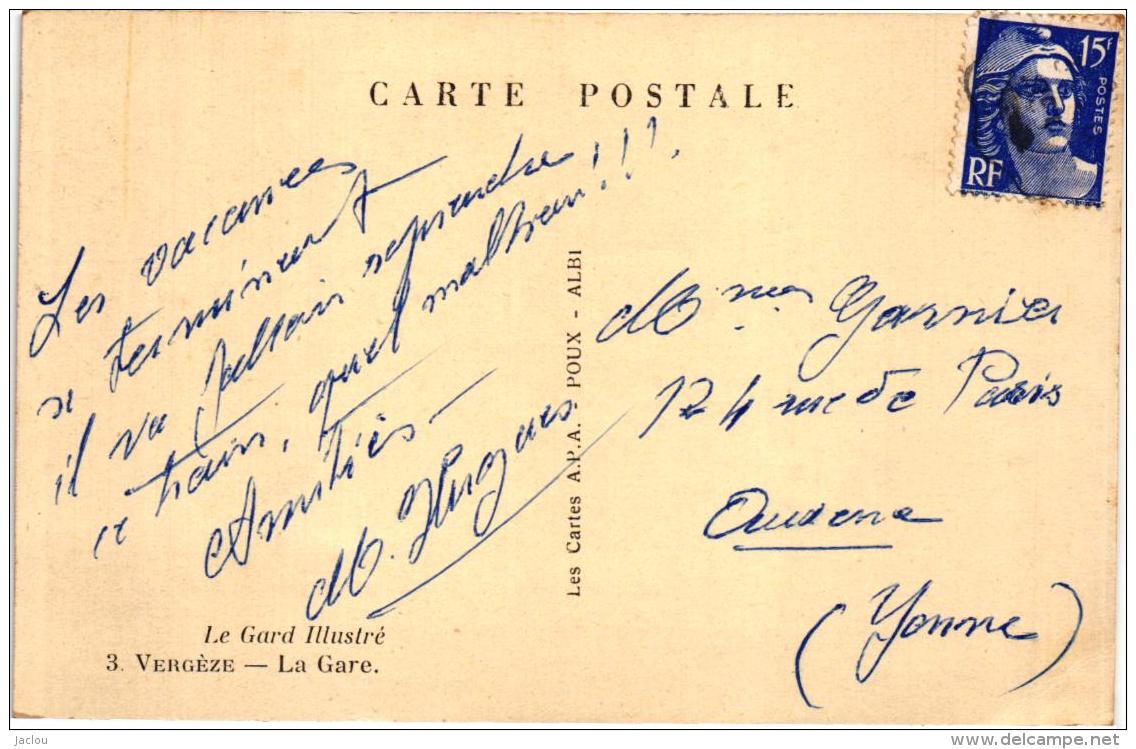 CARTE POSTALE
15F
POSTES
RF
Les vacances
se terminent
il va falloir reprendre
le train, quel malheur!!!
Amitiés
M. Hugues
Les Cartes A.P.A. - POUX - ALBI
Mme Garnier
124 rue de Paris
Auxerre
(Yonne)
Le Gard Illustré
3. VERGÈZE — La Gare.
jaclou
www.delcampe.net